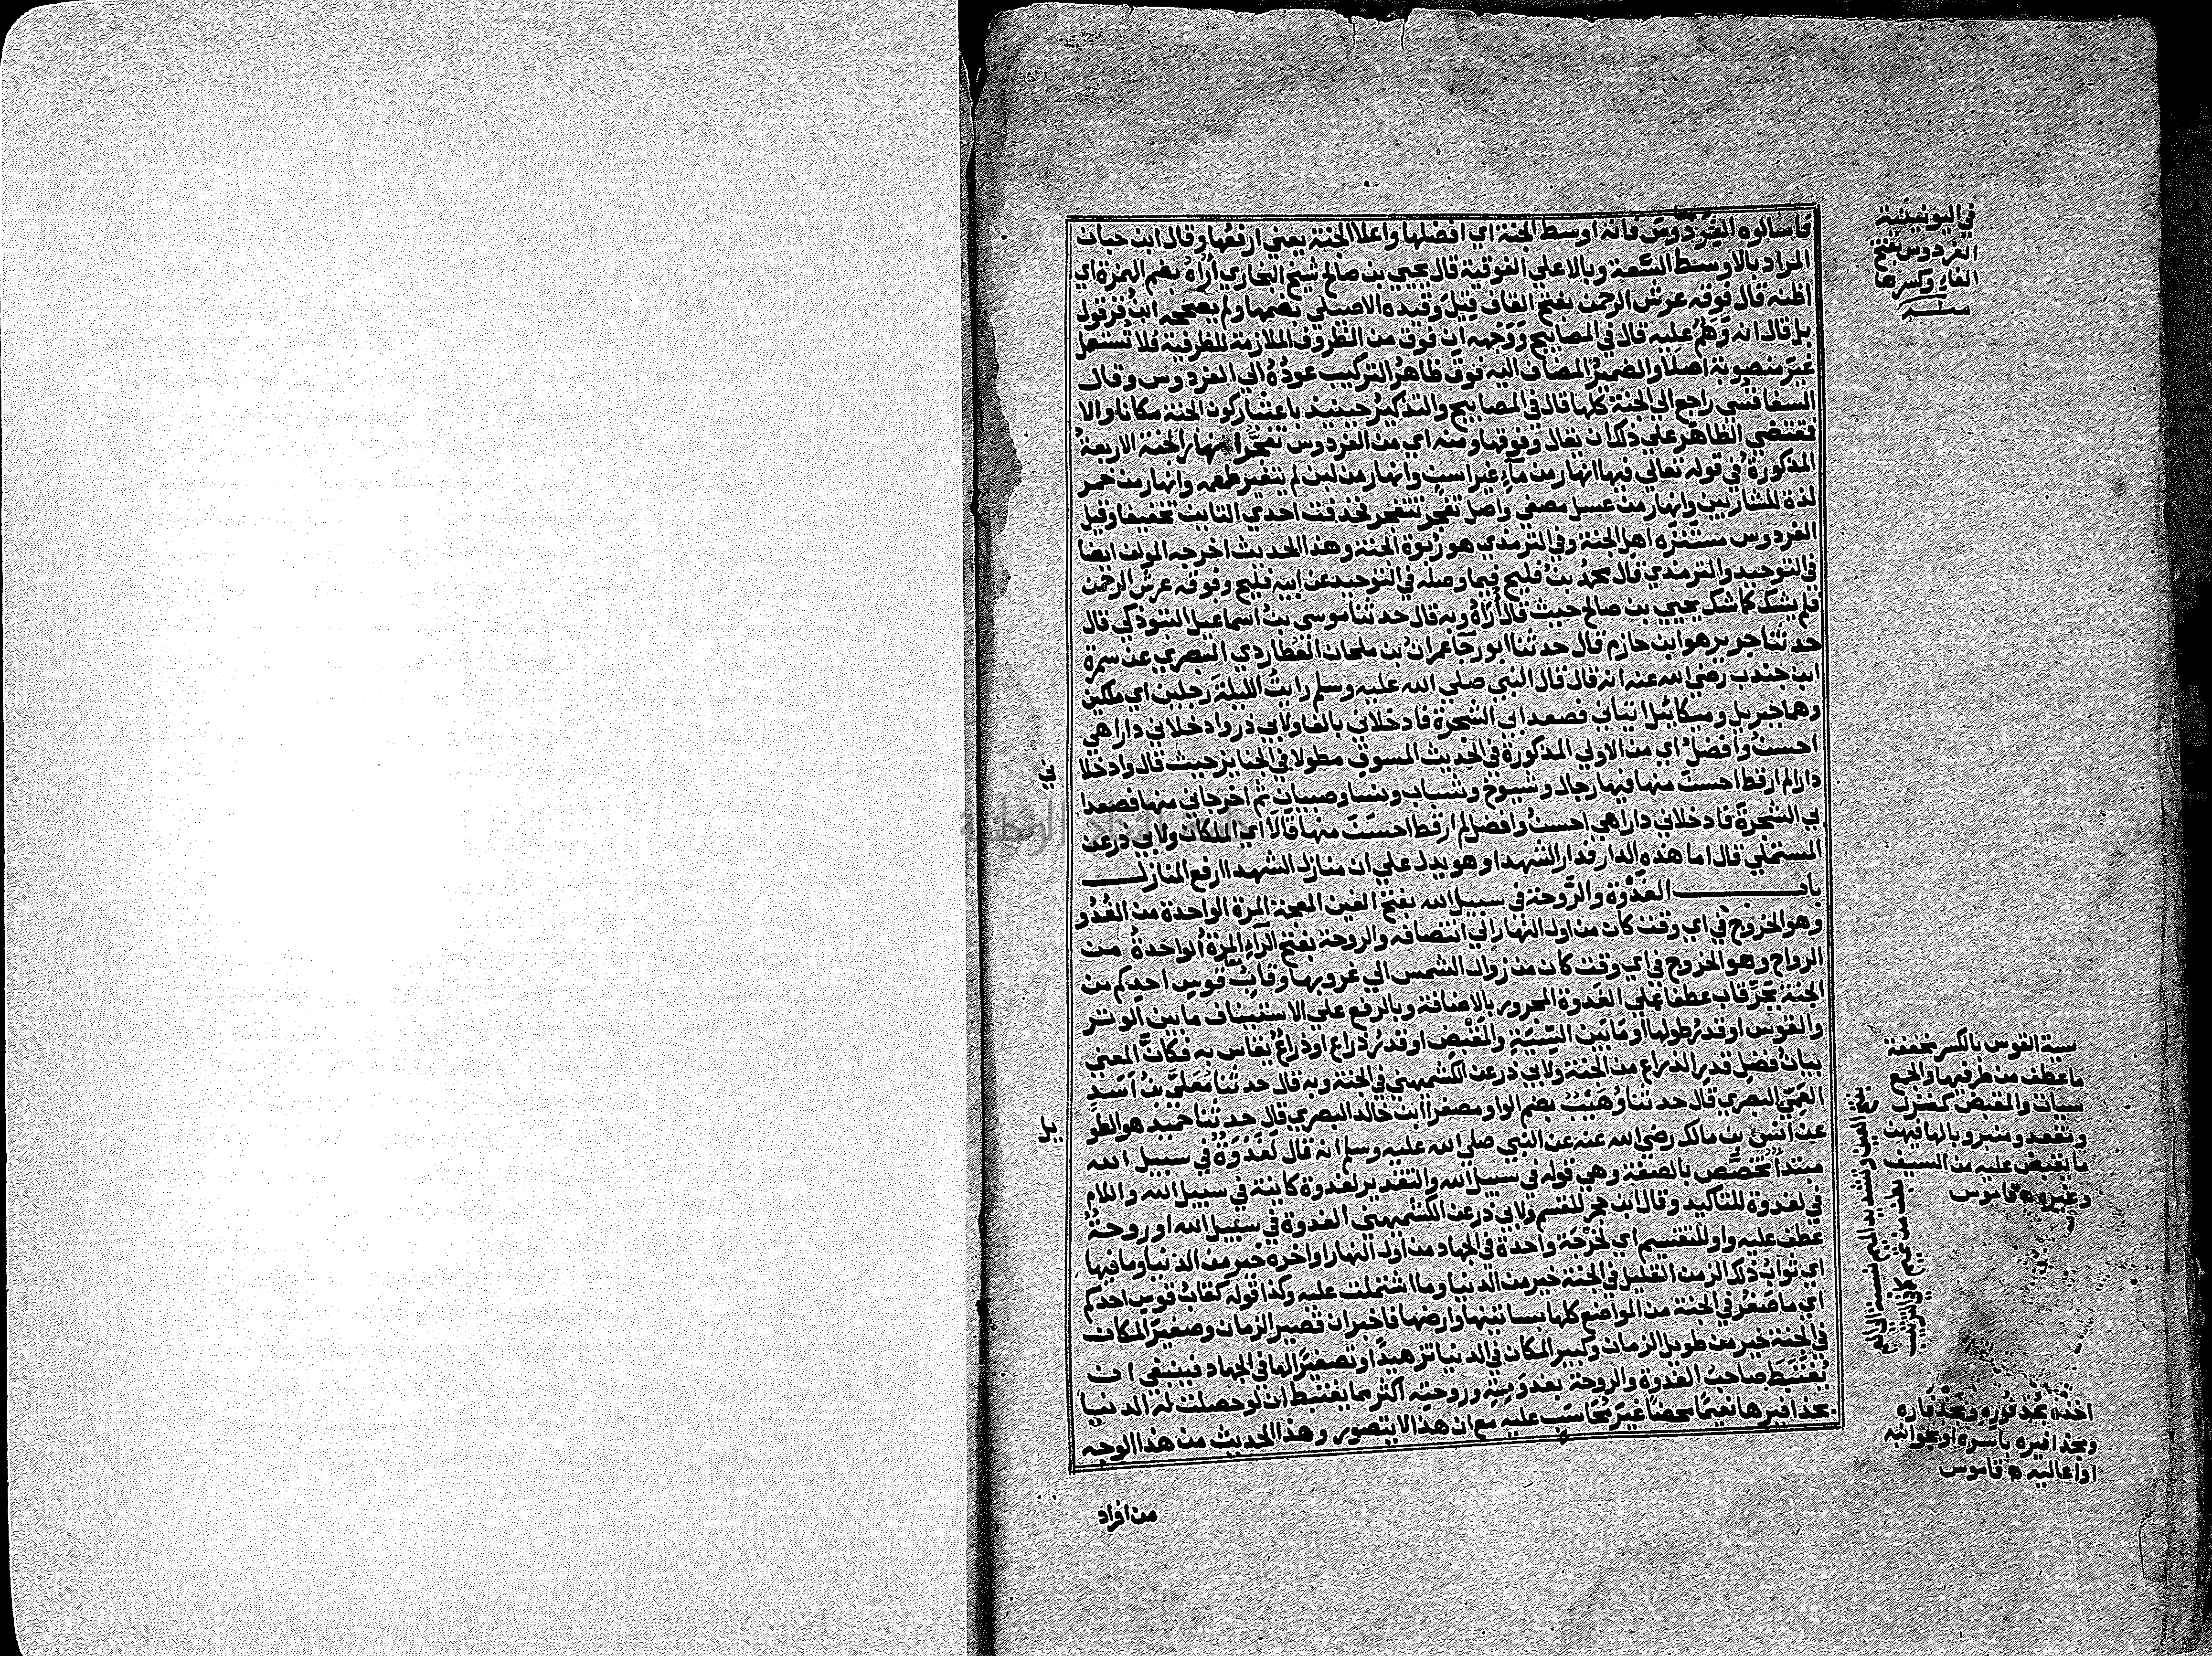 فاسالوه الفردوس فانه اوسط الجنة اي افضلها واعلا الجنة يعني ارفعها وقال ابن حبان
المراد بالاوسط السَّعة وبالاعلي الفوقية قال يحيي بن صالح شيخ البخاري أُرَاهُ بضم الهمزة اي
اظنه قال فوقه عرش الرحمن بفتح القاف قيل وقيده الاصيلي بضمها ولم يصححه ابن قرقول
بل قال انه وَهَمٌ عليه قال في المصابيح وَوَجْهه ان فوق من الظروف الملازمة للظرفية فلا تستعمل
غيرَ منصوبة اصلًا والضميرُ المضاف اليه فوق ظاهر التركيب عودُهُ الي الفردوس وقال
السفاقسي راجع الي الجنة كلها قال في المصابيح والتذكيرُ حينيذ باعتبار كون الجنة مكانا والا
فمقتضي الظاهر علي ذلك ان يقال وفوقها ومنه اي من الفردوس تفجَّر انهار الجنة الاربعةُ
المذكورةُ في قوله تعالي فيها انهار من مآءٍ غير اسن وانهار من لبن لم يتغير طعمه وانهار من خمر
لذة للشاربين وانهار من عسل مصفي واصل تفجر تتفجر فحذفت احدي التاين تخفيفا وقيل
الفردوس مستنزَه اهل الجنة وفي الترمذي هو رُبوة الجنة وهذا الحديث اخرجه المولف ايضا
في التوحيد والترمذي قال محمدُ بنُ فليح فيما وصله في التوحيد عن ابيه فليح وفوقه عرش الرحمن
فلم يشك كما شك يحيي بن صالح حيث قال أُرَاهُ وبه قال حدثنا موسي بنُ اسماعيل التبوذكي قال
حدثنا جرير هو ابن حازم قال حدثنا ابو رجآ عمران بن ملحان العُطاردي البصري عن سمرة
ابن جندب رضي الله عنه انه قال قال النبي صلي الله عليه وسلم رايتُ الليلةَ رجلين اي ملكين
وهما جبريل وميكائيل اتياني فصعدا بي الشجرة فادخلاني بالفا ولابي ذر وادخلاني دارا هي
احسنُ وافضلُ اي من الاولي المذكورة في الحديث المسوق مطولا في الجنايز حيث قال وادخلا
ني
دارا لم ار قط احسنَ منها فيها رجال وشيوخ وشباب ونسا وصبيان ثم اخرجاني منها فصعدا
بي الشجرةَ فادخلاني دارا هي احسنُ وافضل لم ار قط احسنَ منها قَالَا اي الملكان ولابي ذر عن
المستملي قال اما هذه الدار فدار الشهدا وهو يدل علي ان منازل الشهدا ارفع المنازل
باب الغَدْوة والرَّوحة في سبيل الله بفتح الغين المعجمة المرة الواحدة من الغُدُو
وهو الخروج في اي وقت كان من اول النهار الي انتصافه والروحة بفتح الرآءِ المرةُ الواحدةُ من
الرواح وهو الخروج في اي وقت كان من زوال الشمس الي غروبها وقابُ قوسِ احدِكم من
الجنة بجَرّ قاب عطفا علي الغدوة المجرور بالاضافة وبالرفع علي الاستيناف ما بين الوتر
والقوس او قدرُ طولها او مَا بَين السِّيَةِ والمَقْبضِ او قدرُ ذراع او ذراعٌ يقاس به فكان المعني
بيانُ فضلِ قدرِ الذراع من الجنة ولابي ذر عن الكشميهني في الجنة وبه قال حدثنا مُعَليَّ بن أَسَدٍ
العَمّيّ البصري قال حدثنا وُهَيْبٌ بضم الواو مصغرا ابن خالد البصري قال حدثنا حميد هو الطو
يل
عن انس بن مالك رضي الله عنه عن النبي صلي الله عليه وسلم انه قال لَغَدْوَةٌ في سبيل الله
مبتدأٌ تخصَّص بالصفة وهي قوله في سبيل الله والتقدير لغدوة كاينة في سبيل الله واللام
في لغدوة للتاكيد وقال ابن حجر للقسم ولابي ذر عن الكشميهني الغدوة في سبيل الله او روحةٌ
عطف عليه واو للتقسيم اي لخَرْجَة واحدة في الجهاد من اول النهار او اخره خير من الدنيا وما فيها
اي ثوابُ ذلك الزمن القليل في الجنة خير من الدنيا وما اشتملت عليه وكذا قوله كقابُ قوس احدكم
اي ما صَغُرَ في الجنة من المواضع كلها بساتينها وارضها فاخبر ان قصير الزمان وصغير المكان
في الجنة خير من طويل الزمان وكبير المكان في الدنيا تزهيدًا وتصغيرًا لها في الجهاد فينبغي ان
يُغْتَبِطَ صاحبُ الغدوة والروحة بغدوتِه وروحتِه اكثر مما يغتبط ان لو حصلت له الدنيا
بحذافيرها نعيمًا محضًا غيرَ محاسَب عليه مع ان هذا لا يتصور وهذا الحديث من هذا الوجه
من افراد
في اليونينية
الفردوس بفتح
الفاء وكسرها
منه
سية القوس بالكسر مخففة
ما عطف من طرفيها والجمع
سيات والمقبض كمنزل
ومقعد ومنبر وبالها فيهن
ما يقبض عليه من السيف
وغيره قاموس
بفتح العين وتشديد الميم نسبة الي العم
بطن من تميم كما في الترتيب
اخذه بحُذفُوره وبحذفاره
وبحذافيره باسره او بجوانبه
او اعاليه قاموس
جامعة النجاح الوطنية